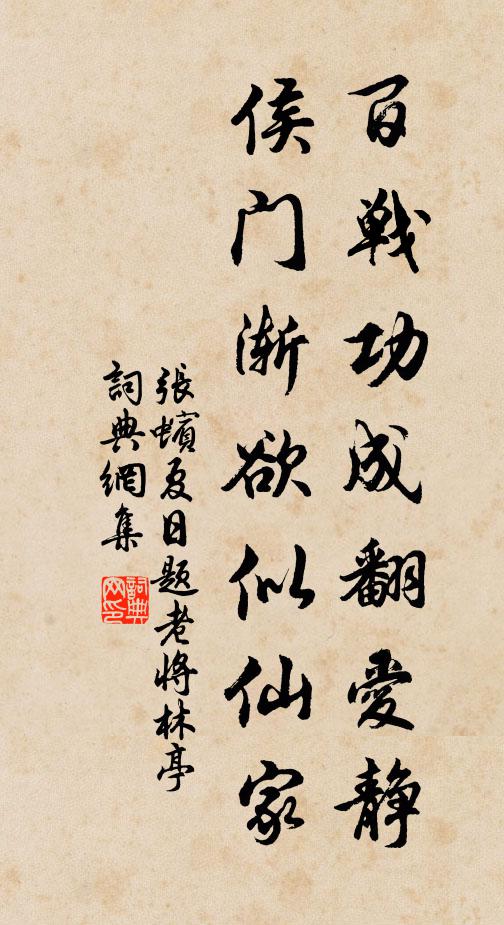 百戦功成翻愛静
侯门渐欲似仙家
張蠙夏日題老将林亭
詞典網集
詞典網印